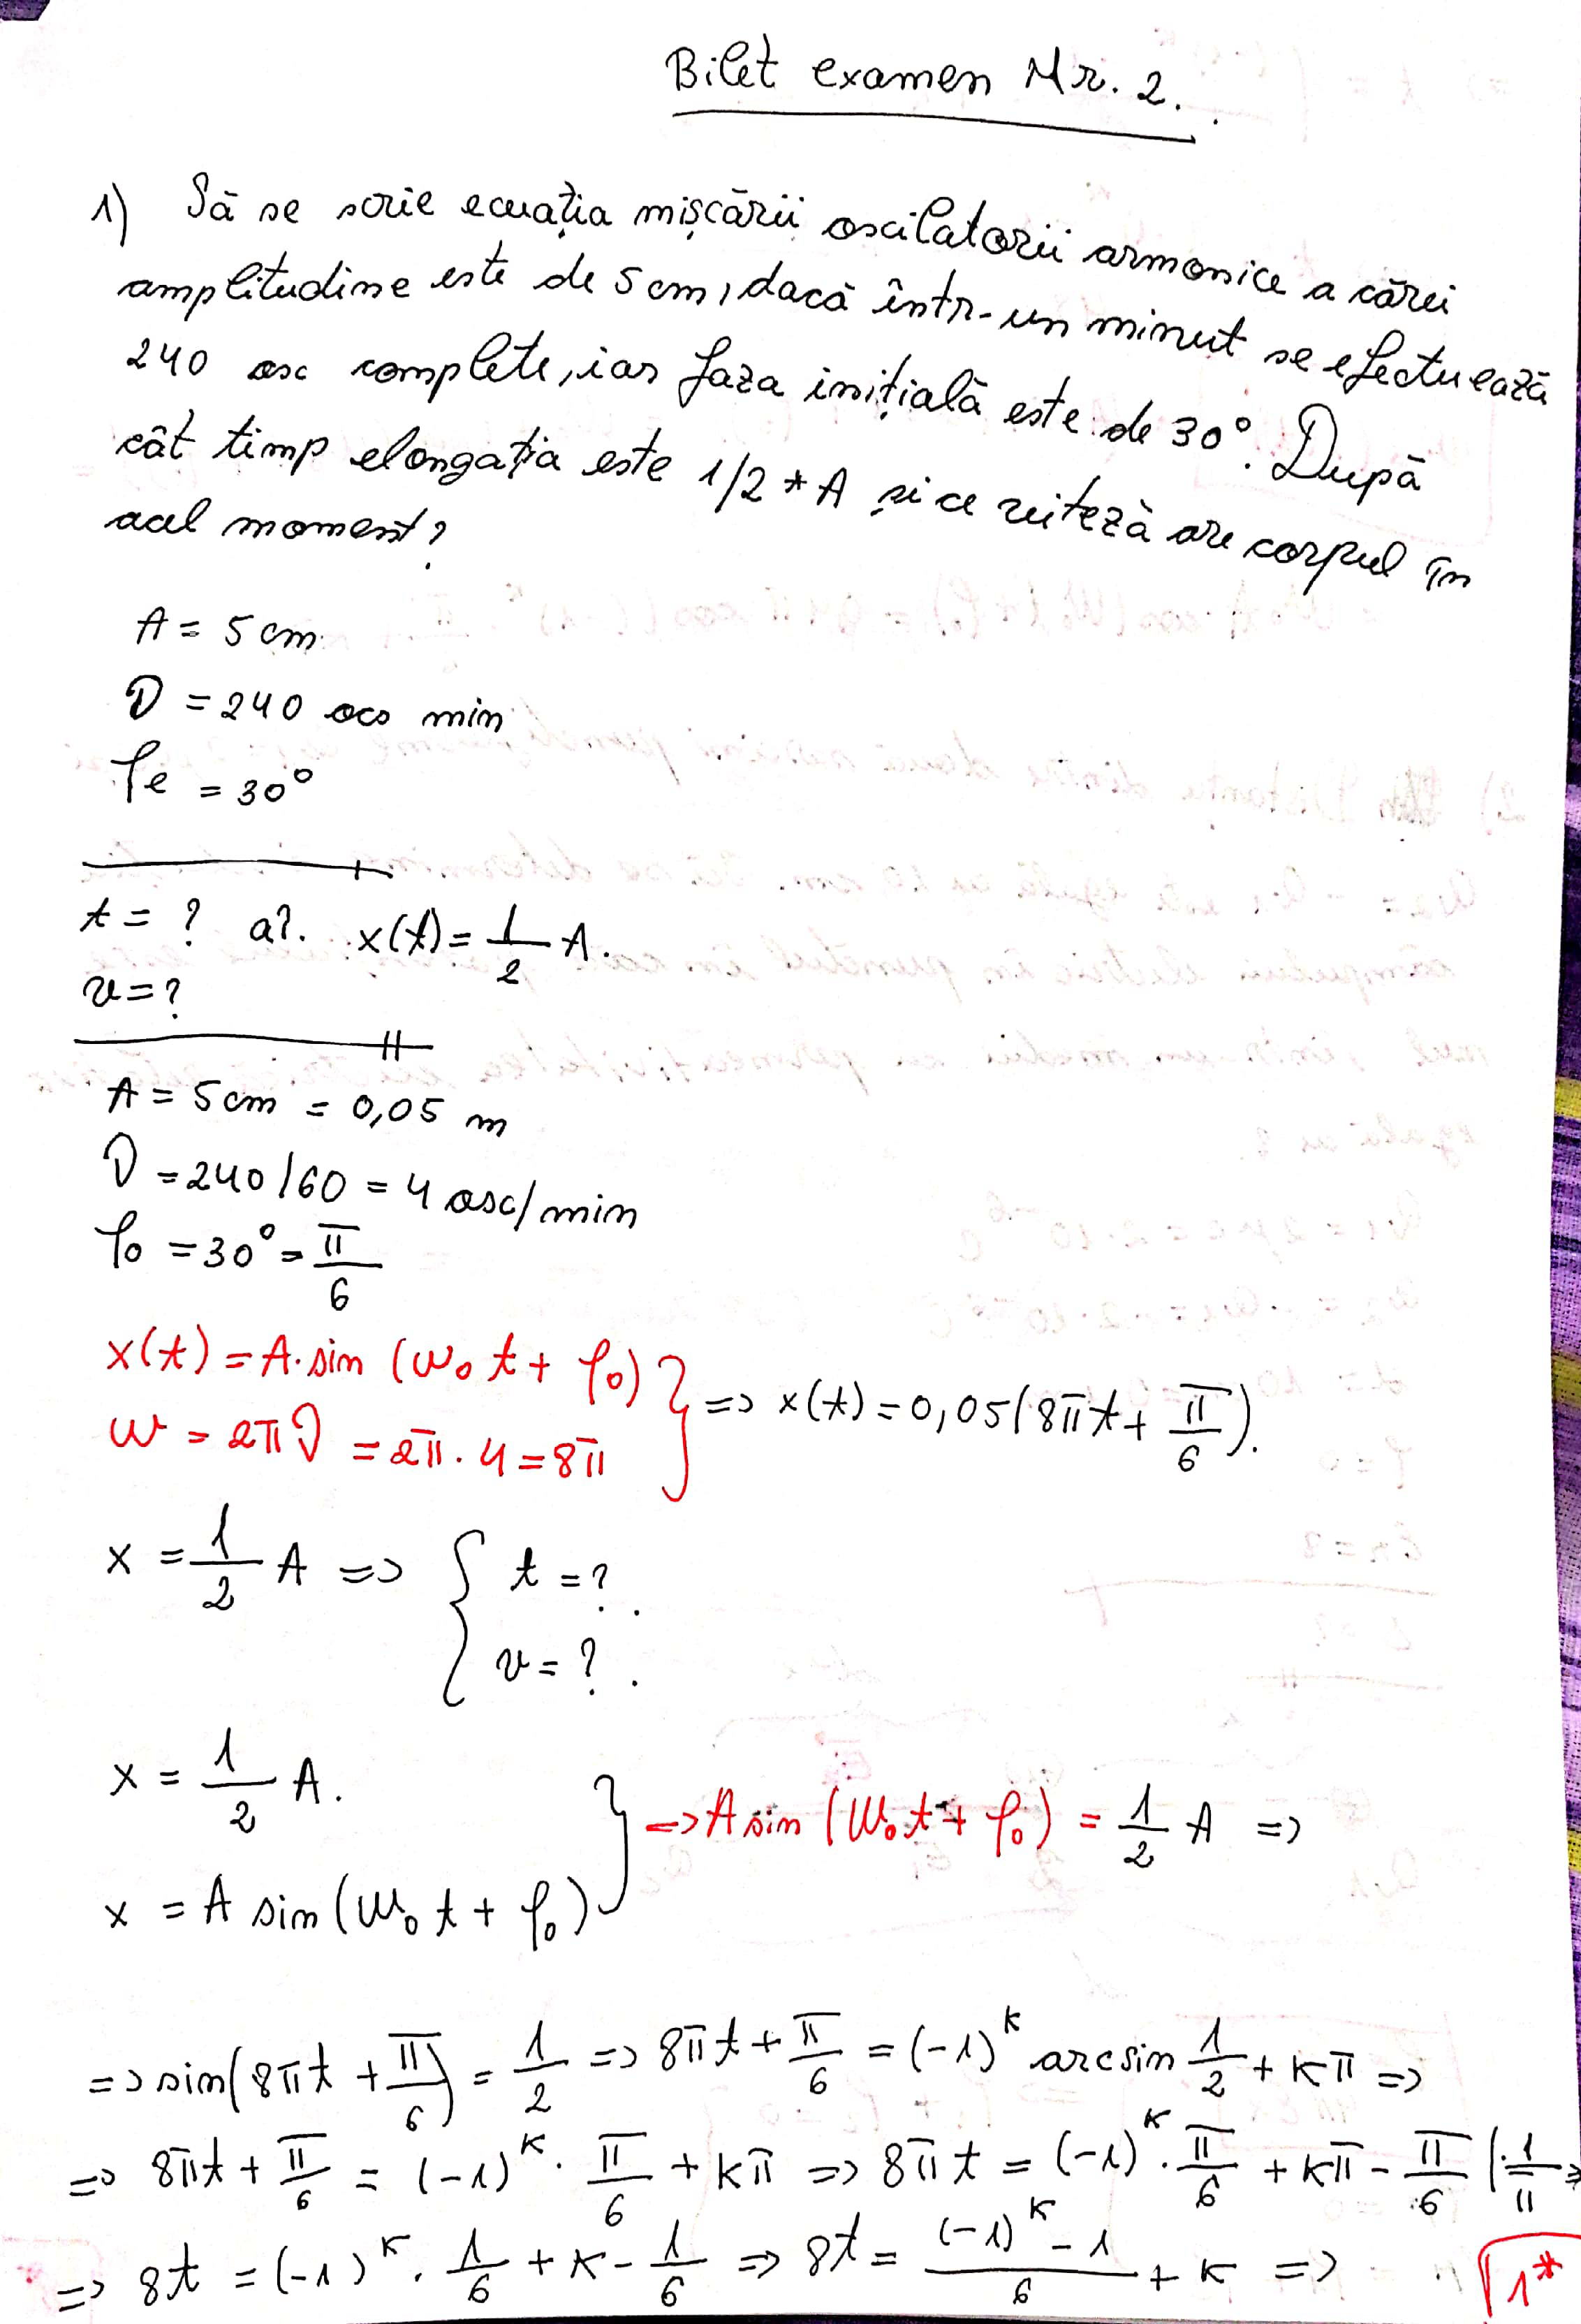 Bilet examen Nr. 2.
1) Să se scrie ecuația mișcării oscilatorii armonice a cărei
amplitudine este de 5 cm, dacă într-un minut se efectuează
240 osc complete, iar faza inițială este de 30°. După
cât timp elongația este 1/2 * A și ce viteză are corpul în
acel moment?
A = 5 cm
ν = 240 osc min
φe = 30°
t = ? aî. x(t) = 1/2 A.
v = ?
A = 5 cm = 0,05 m
ν = 240/60 = 4 osc/min
φ0 = 30° = π/6
x(t) = A·sin (ω0 t + φ0)
ω = 2πν = 2π·4 = 8π } => x(t) = 0,05(8πt + π/6).
x = 1/2 A => { t = ?.
v = ?.
x = 1/2 A.
x = A sin(ω0 t + φ0) } => A sin (ω0 t + φ0) = 1/2 A =>
=> sin(8πt + π/6) = 1/2 => 8πt + π/6 = (-1)^k arcsin 1/2 + kπ =>
=> 8πt + π/6 = (-1)^k · π/6 + kπ => 8πt = (-1)^k · π/6 + kπ - π/6 |·1/π =>
=> 8t = (-1)^k · 1/6 + k - 1/6 => 8t = ((-1)^k - 1)/6 + k =>
1*